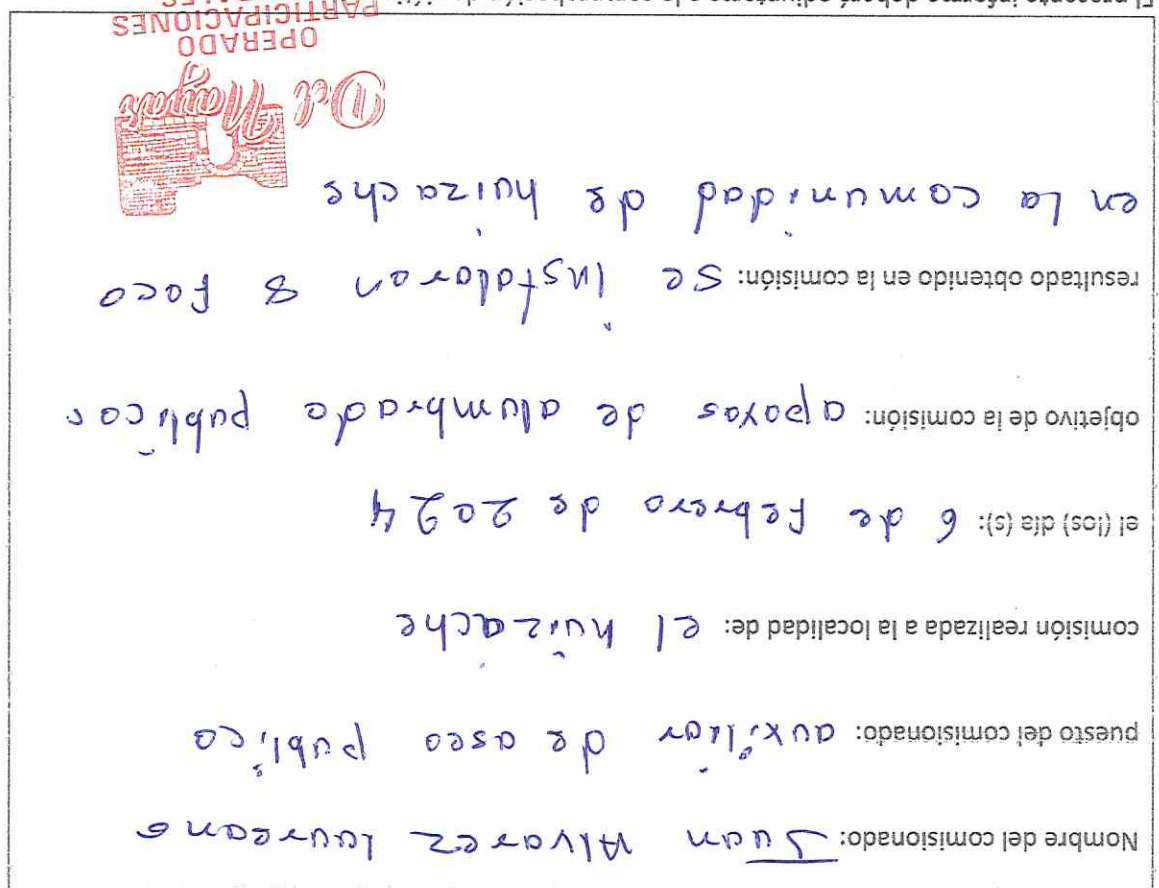 Nombre del comisionado: Juan Alvarez Laureano
puesto del comisionado: auxiliar de aseo publico
comisión realizada a la localidad de: el huizache
el (los) día (s): 6 de Febrero de 2024
objetivo de la comisión: apoyos de alumbrado publicos
resultado obtenido en la comisión: se instalaron 8 foco
en la comunidad de huizache
Del Mezquital
OPERADO
PARTICIPACIONES
El presente informe deberá adjuntarse a la comprobación de